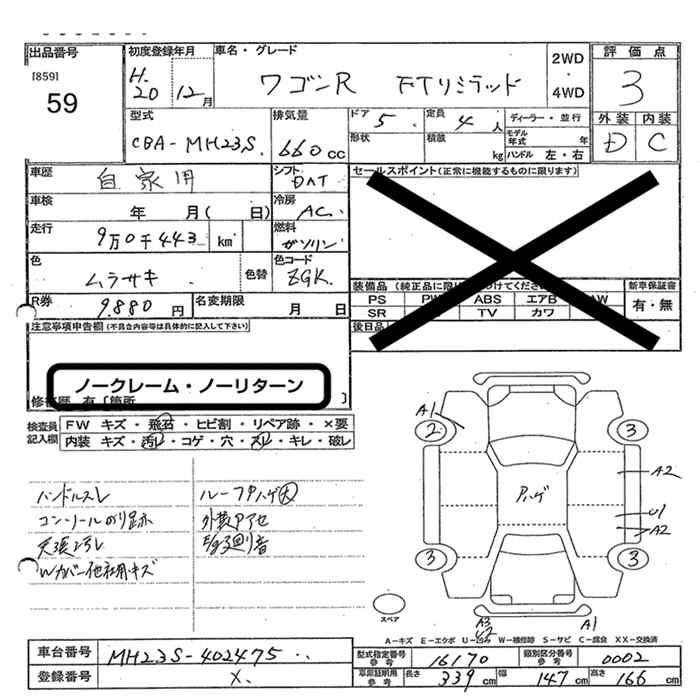 出品番号
[859]
59
初度登録年月
H.20 12月
車名・グレード
ワゴンR FTリミテッド
2WD
・
4WD
評価点
3
外装 内装
D C
型式
CBA-MH23S.
排気量
660cc
ドア 5
定員 4人
形状
積載 kg
ディーラー・並行
モデル年式 年
ハンドル 左・右
車歴 自家用
シフト DAT
車検 年 月( 日)
冷房 AC.
走行 9万0千443 km
燃料 ガソリン
色 ムラサキ
色替
色コード ZGK.
R券 9.880円
名変期限 月 日
セールスポイント(正常に機能するものに限ります)
装備品
PS ABS エアB AW
SR TV カワ
後日品
新車保証書
有・無
注意事項申告欄(不具合内容等は具体的に記入して下さい)
ノークレーム・ノーリターン
修復歴 有 [箇所 ]
検査員記入欄
FW キズ・飛石・ヒビ割・リペア跡・×要
内装 キズ・汚レ・コゲ・穴・スレ・キレ・破レ
ハンドルスレ
コンソールのり跡
天張汚レ
Wカバー他社用キズ
ルーフPハゲ大
外装Pアセ
A1
2
3
A2
Pハゲ
U1
A2
3
3
スペア
A3
U2
A1
A-キズ E-エクボ U-凹み W-補修跡 S-サビ C-腐食 XX-交換済
車台番号 MH23S-402475
登録番号 X.
型式指定番号 参考 16170
類別区分番号 参考 0002
車庫証明用 参考 長さ 339cm 幅 147cm 高さ 166cm